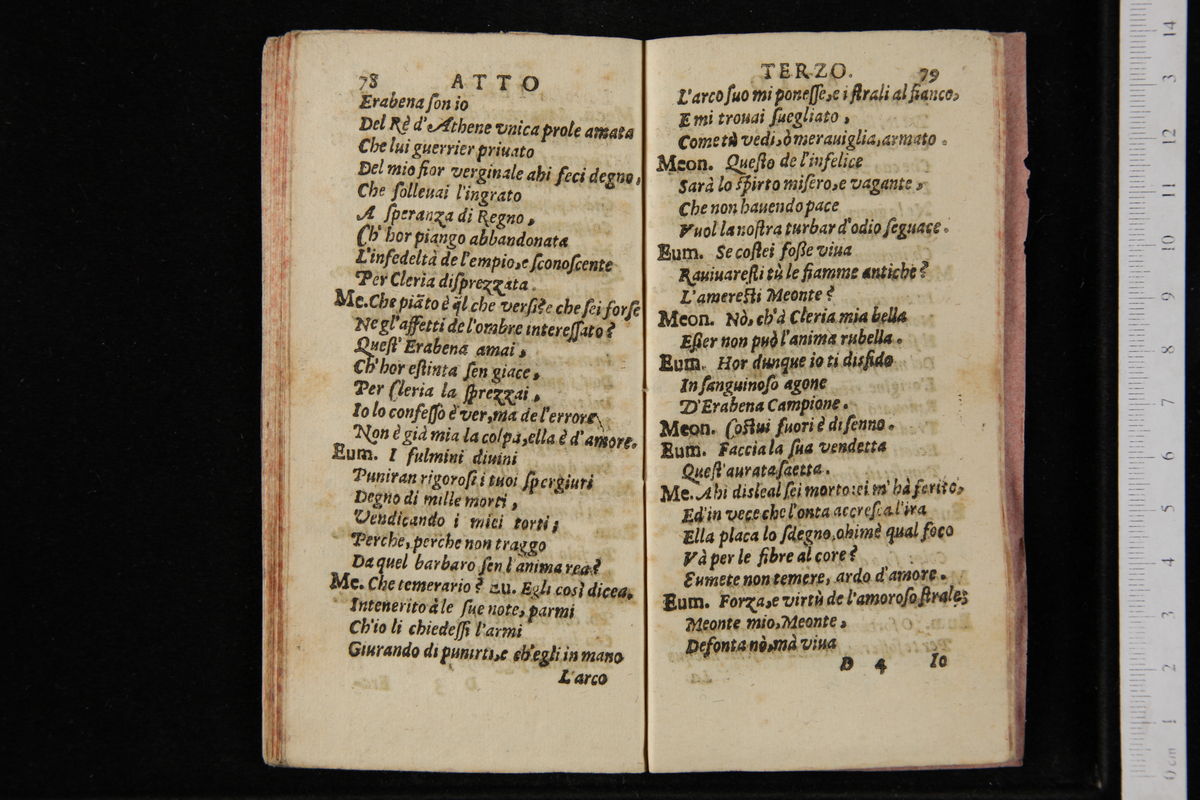 78 ATTO
Erabena son io
Del Rè d'Athene vnica prole amata
Che lui guerrier priuato
Del mio fior verginale ahi feci degno,
Che solleuai l'ingrato
A speranza di Regno,
Ch'hor piango abbandonata
L'infedeltà de l'empio, e sconoscente
Per Cleria disprezzata.
Me. Che piãto è q̃l che versi? e che sei forse
Ne gl'affetti de l'ombre interessato?
Quest'Erabena amai,
Ch'hor estinta sen giace,
Per Cleria la sprezzai,
Io lo confesso è ver, ma de l'errore
Non è già mia la colpa, ella è d'amore.
Eum. I fulmini diuini
Puniran rigorosi i tuoi spergiuri
Degno di mille morti,
Vendicando i miei torti;
Perche, perche non traggo
Da quel barbaro sen l'anima rea?
Me. Che temerario? Eu. Egli così dicea.
Intenerito à le sue note, parmi
Ch'io li chiedessi l'armi
Giurando di punirti, e ch'egli in mano
L'arco
TERZO. 79
L'arco suo mi ponesse, e i strali al fianco,
E mi trouai suegliato,
Come tù vedi, ò merauiglia, armato.
Meon. Questo de l'infelice
Sarà lo spirto misero, e vagante,
Che non hauendo pace
Vuol la nostra turbar d'odio seguace.
Eum. Se costei fosse viua
Rauiuaresti tù le fiamme antiche?
L'ameresti Meonte?
Meon. Nò, ch'à Cleria mia bella
Esser non può l'anima rubella.
Eum. Hor dunque io ti disfido
In sanguinoso agone
D'Erabena Campione.
Meon. Costui fuori è di senno.
Eum. Faccia la sua vendetta
Quest'aurata saetta.
Me. Ahi disleal sei morto: ei m'hà ferito,
Ed in vece che l'onta accresca l'ira
Ella placa lo sdegno, ohimè qual foco
Và per le fibre al core?
Eumete non temere, ardo d'amore.
Eum. Forza, e virtù de l'amoroso strale;
Meonte mio, Meonte,
Defonta nò, mà viua
D 4 Io